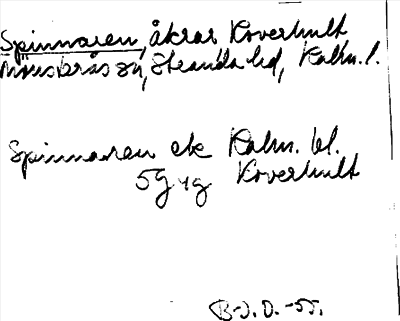 Spinnaren, åkrar Koverhult
Mönsterås sn, Stranda hd, Kalm. l.
Spinnaren ek Kalm. bl.
5g 4g Koverhult
B-J. D. -55.